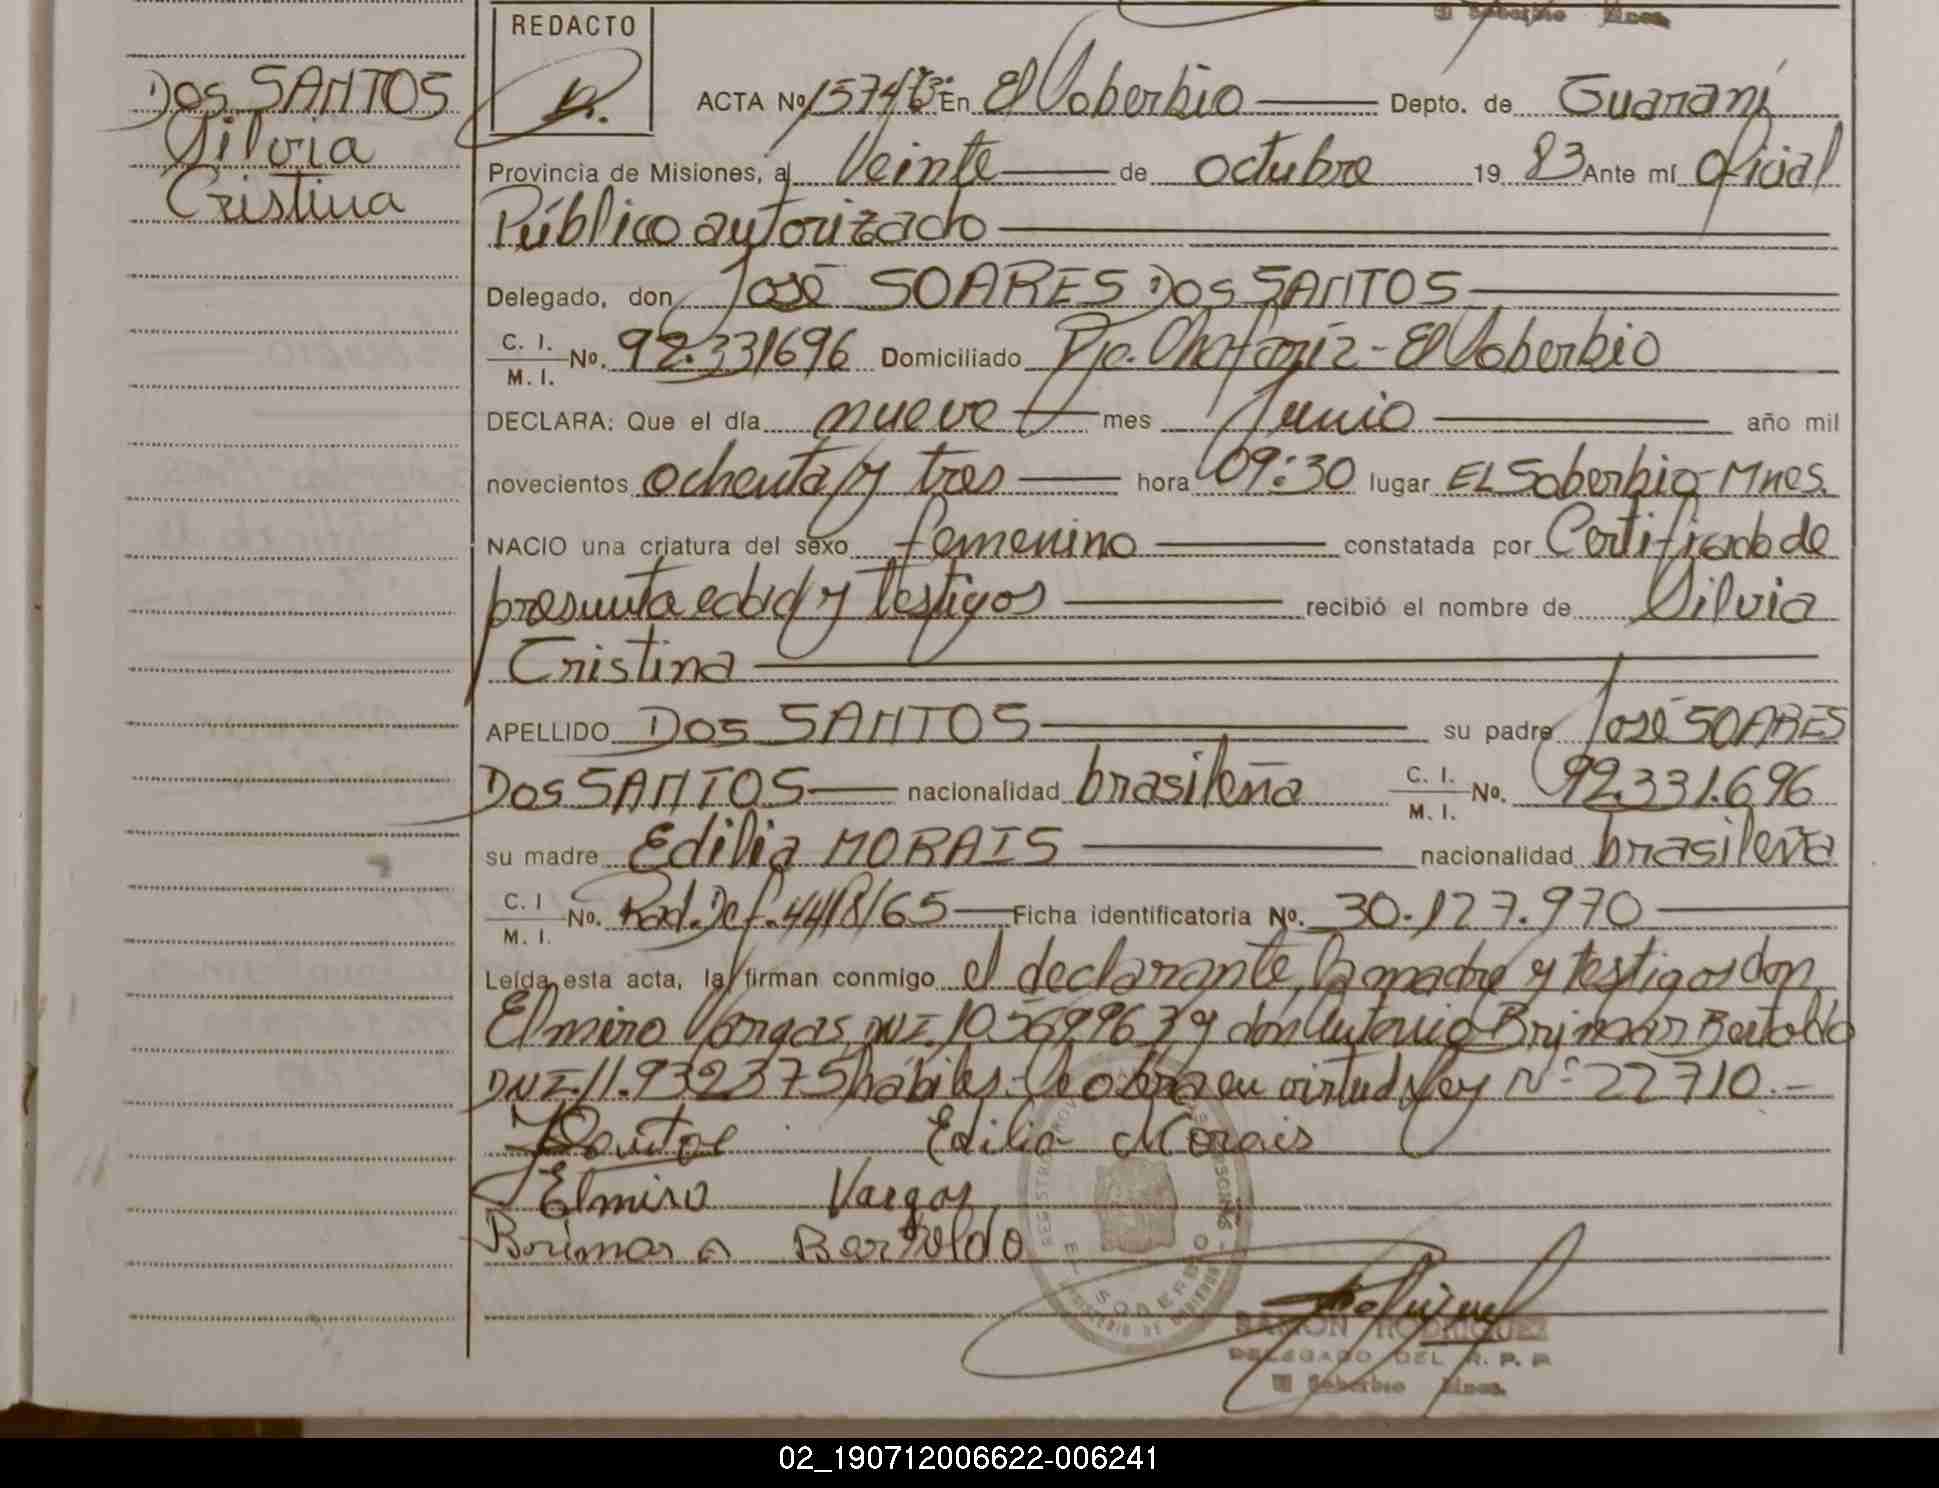 El Soberbio Mnes.
REDACTO
DOS SANTOS
Silvia
Cristina
ACTA Nº 1574 Tº: 6 En El Soberbio Depto. de Guaraní
Provincia de Misiones, al Veinte de octubre 19 83 Ante mí Oficial
Público autorizado
Delegado, don José SOARES DOS SANTOS
C. I. / M. I. No. 92.331696 Domiciliado Pje. Chafariz - El Soberbio
DECLARA: Que el día nueve mes Junio año mil
novecientos ochenta y tres hora 09:30 lugar EL Soberbio - Mnes.
NACIO una criatura del sexo femenino constatada por Certificado de
presunta edad y testigos recibió el nombre de Silvia
Cristina
APELLIDO DOS SANTOS su padre José SOARES
DOS SANTOS nacionalidad brasileña C. I. / M. I. No. 92.331.696
su madre Edilia MORAIS nacionalidad brasileña
C. I / M. I. No. Rad. Def. 4418/65 Ficha identificatoria No. 30.127.970
Leída esta acta, la firman conmigo el declarante, la madre y testigos don
Elmiro Vargas DNI. 10.569963 y don Antonio Brimar Bertoldo
DNI. 11.932375 hábiles.- Se obra en virtud Ley Nº 22710.-
Santos Edilia Morais
Elmiro Vargas
Brimar A Bertoldo
EL SOBERBIO
RAMON RODRIGUEZ
DELEGADO DEL R. P. P.
El Soberbio Mnes.
02_190712006622-006241